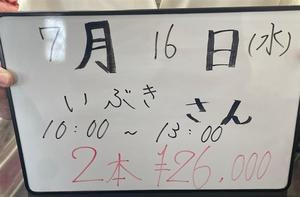 7月16日(水)
いぶきさん
10:00～13:00
2本 ¥26,000